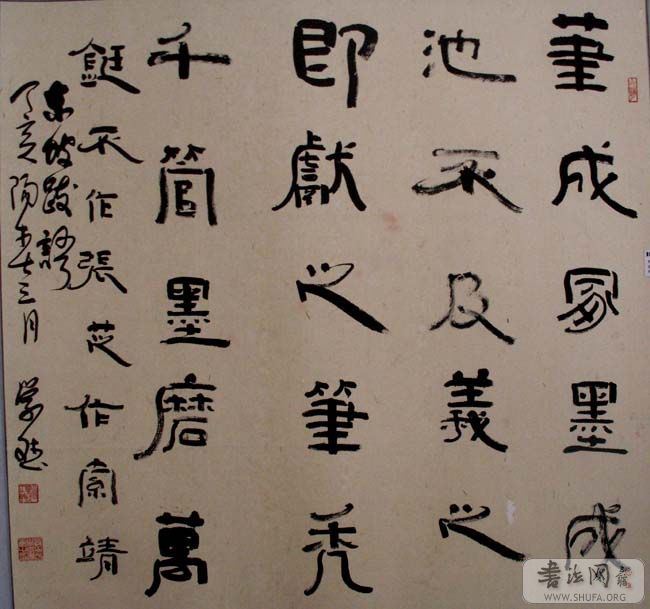 筆成冢墨成
池不及羲之
即獻之筆禿
千管墨磨萬
鋌不作張芝作索靖
东坡跋語
丁亥陽春三月
書法网
WWW.SHUFA.ORG